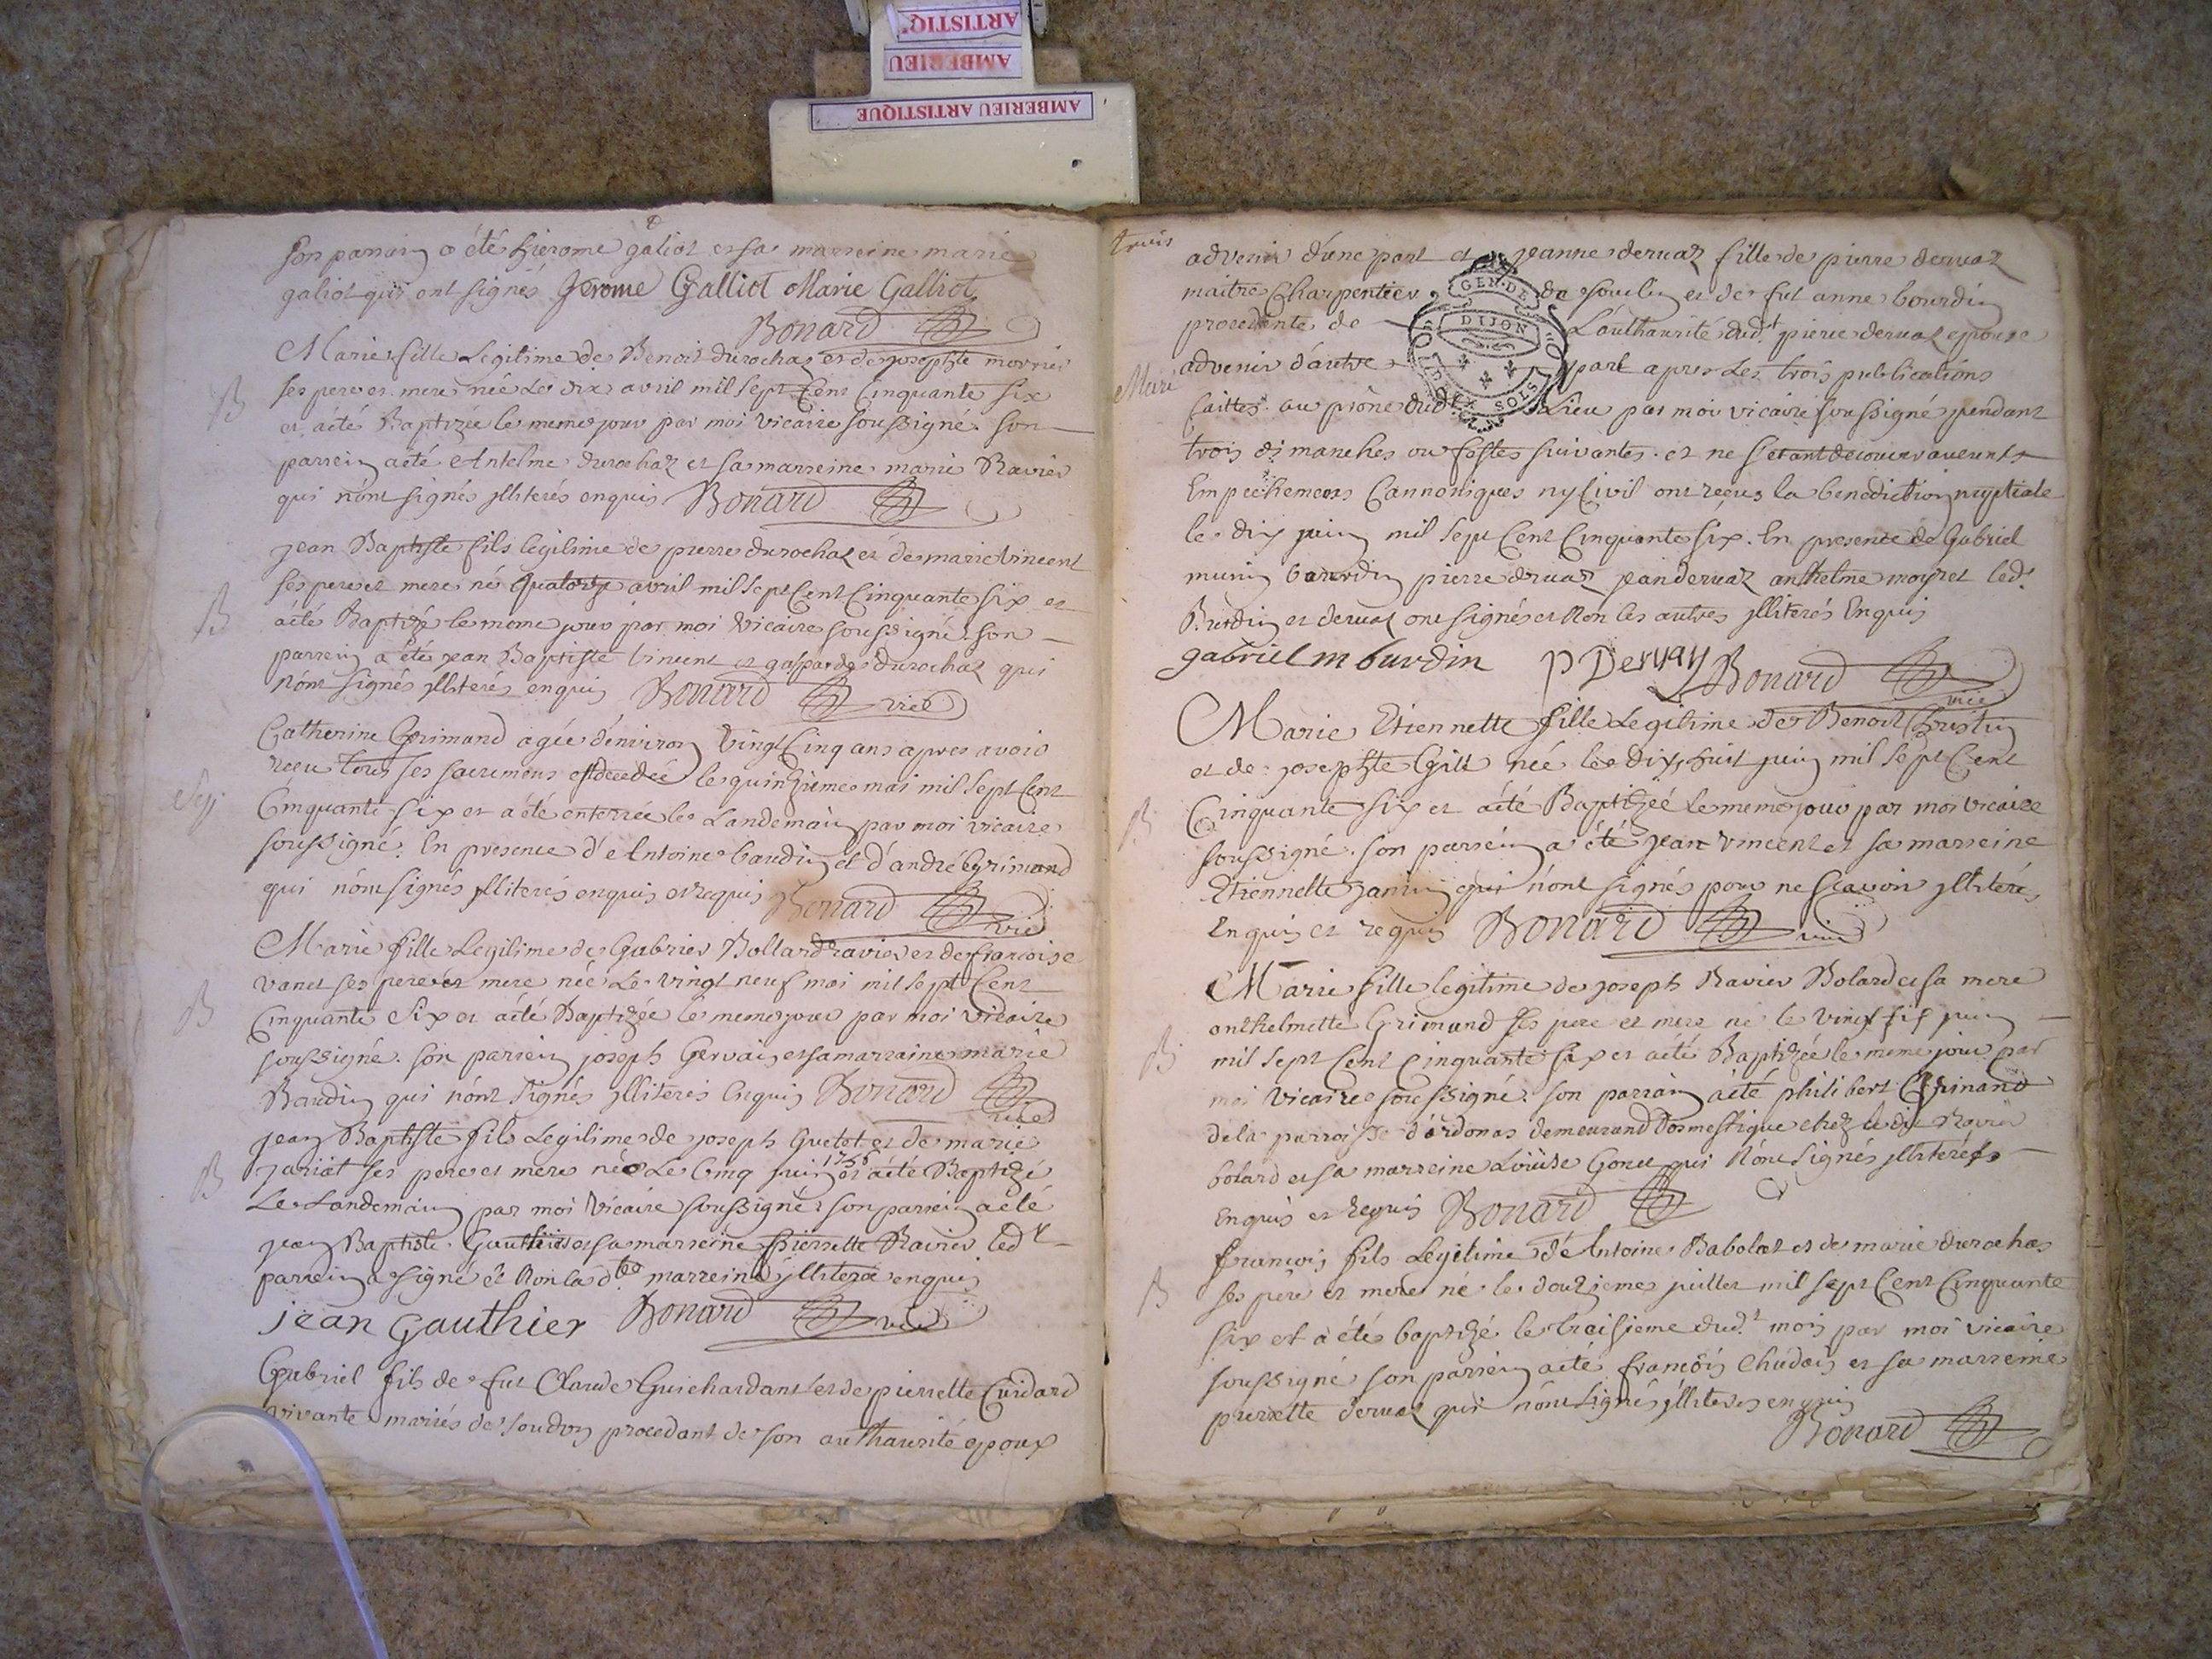 ARTISTIQ
AMBERIEU
AMBERIEU ARTISTIQUE
son parrain a été hierome galiot et sa marreine marie
galiot qui ont signés Jerome Galliot Marie Galliot
Bonard
Marie fille Legitime de Benoit durochaz et de josephte
ses pere et mere née Le dix avril mil sept Cent Cinquante six
B
et a été Baptizée le meme jour par moi vicaire soussigné. son
parrein a été Antelme durochaz et sa marreine marie Ravier
qui n'ont signés illiterés enquis Bonard
jean Baptiste fils legitime de pierre durochaz et de marie vincent
ses pere et mere né quatorze avril mil sept Cent Cinquante six et
B
a été Baptizé le meme jour par moi Vicaire soussigné son
parrein a été jean Baptiste Vincent et gasparde durochaz qui
n'ont signés illiterés enquis Bonard vice
Catherine Grimand agée d'environ Vingt Cinq ans apres avoir
receu tous ses sacremens est decedée le quinzieme mai mil sept Cent
Sep.
Cinquante six et a été enterrée le Landemain par moi vicaire
soussigné. En presence d'Antoine baudin et d'andré Grimand
qui n'ont signés illiterés enquis et requis Bonard vice
Marie fille Legitime de Gabriel Bollard ravier et de francoise
vanet ses pere et mere née Le vingt neuf mai mil sept Cent
B
Cinquante Six et a été Baptizée le meme jour par moi vicaire
soussigné. son parrein joseph Gervais et sa marraine marie
Baudin qui n'ont signés illiteres Enquis Bonard vice
jean Baptiste fils Legitime de joseph Guetot et de marie
B
jariat ses pere et mere né Le Cinq juin 1756 et a été Baptizé
Le Landemain par moi Vicaire soussigné son parrein a été
jean Baptiste Gauthier et sa marreine pierrette Ravier led.t
parrein a signé et Non lad.te marreine illiterée enquis
jean Gauthier Bonard vice
Gabriel fils de fut Claude Guichardant et de pierrette Cuidard
vivante mariés de soudon procedant de son authaurité epoux
trois
advenir d'une part et jeanne dervaz fille de pierre dervaz
maitre Charpentier de et de fut anne bourdin
procedante de L'authaurité dud.t pierre dervaz epouse
GEN. DE
DIJON
DEUX SOLS
Mari
advenir d'autre part apres Les trois publications
faittes au prône dud.t Lieu par moi vicaire soussigné pendant
trois dimanches ou festes suivantes. et ne s'etant decouver aucunts
Empechemens Cannoniques ny Civil ont reçus la benediction nuptiale
le dix juin mil sept Cent Cinquante six. En presence de Gabriel
burdin pierre dervaz jean dervaz anthelme moyret led.t
Burdin et dervaz ont signés et Non les autres illiterés Enquis
gabriel m burdin P Dervay Bonard vice
Marie Etiennette fille Legitime de Benoit
et de josephte Gitt née le dix huit juin mil sept Cent
B
Cinquante six et a été Baptizée le meme jour par moi vicaire
soussigné. son parrein a été jean vincent et sa marreine
Etiennette janin qui n'ont signés pour ne scavoir illiterés
Enquis et requis Bonard vice
Marie fille legitime de joseph Ravier Bolard et sa mere
anthelmette Grimand ses pere et mere né le vingt six juin
B
mil sept Cent Cinquante six et a été Baptizée le meme jour par
moi Vicaire soussigné. son parrain a été philibert Grimand
de la parroisse d'ordonas demeurand domestique chez ledit Ravier
bolard et sa marreine Loüise Gonet qui N'ont signés illiterés
Enquis et Requis Bonard
françois fils Legitime d'Antoine Babolat et de marie durochas
B
ses pere et mere né le douzieme juillet mil sept Cent Cinquante
six et a été baptizé le traisieme dud.t mois par moi vicaire
soussigné son parrein a été françois et sa marreine
pierrette dervaz qui n'ont signés illiterés enquis
Bonard